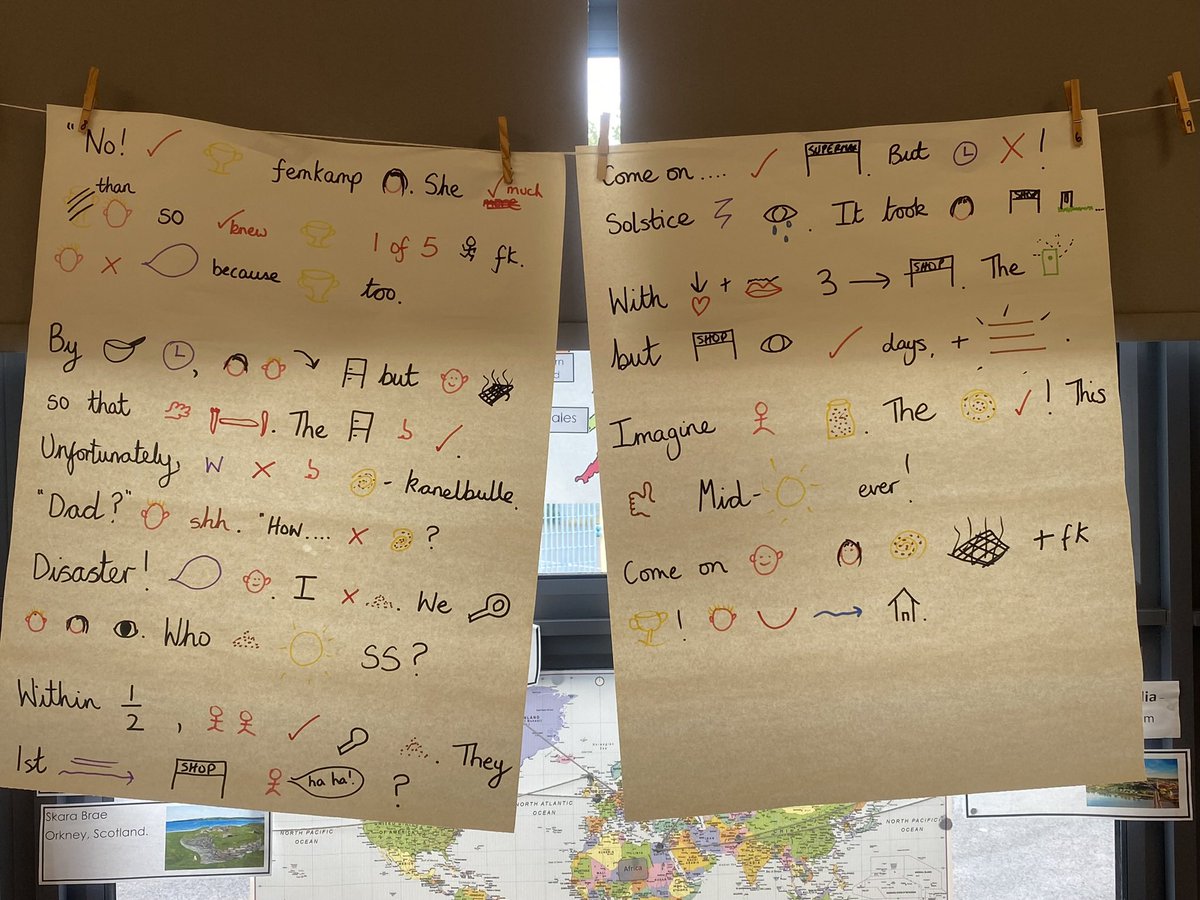 "No! femkamp . She much
than so knew 1 of 5 fk.
because too.
By , but
so that . The .
Unfortunately, W - kanelbulle.
"Dad?" shh. "How.... ?
Disaster! . I . We
. Who SS?
Within 1/2 , . They
1st SHOP ha ha! ?
Come on.... SUPERMAR . But !
Solstice . It took SHOP
With + 3 SHOP . The
but SHOP days, + .
Imagine . The ! This
Mid- ever!
Come on + fk
! .
ales
Skara Brae
Orkney, Scotland.
NORTH PACIFIC
OCEAN
NORTH ATLANTIC
OCEAN
Africa
NORTH PACIFIC
OCEAN